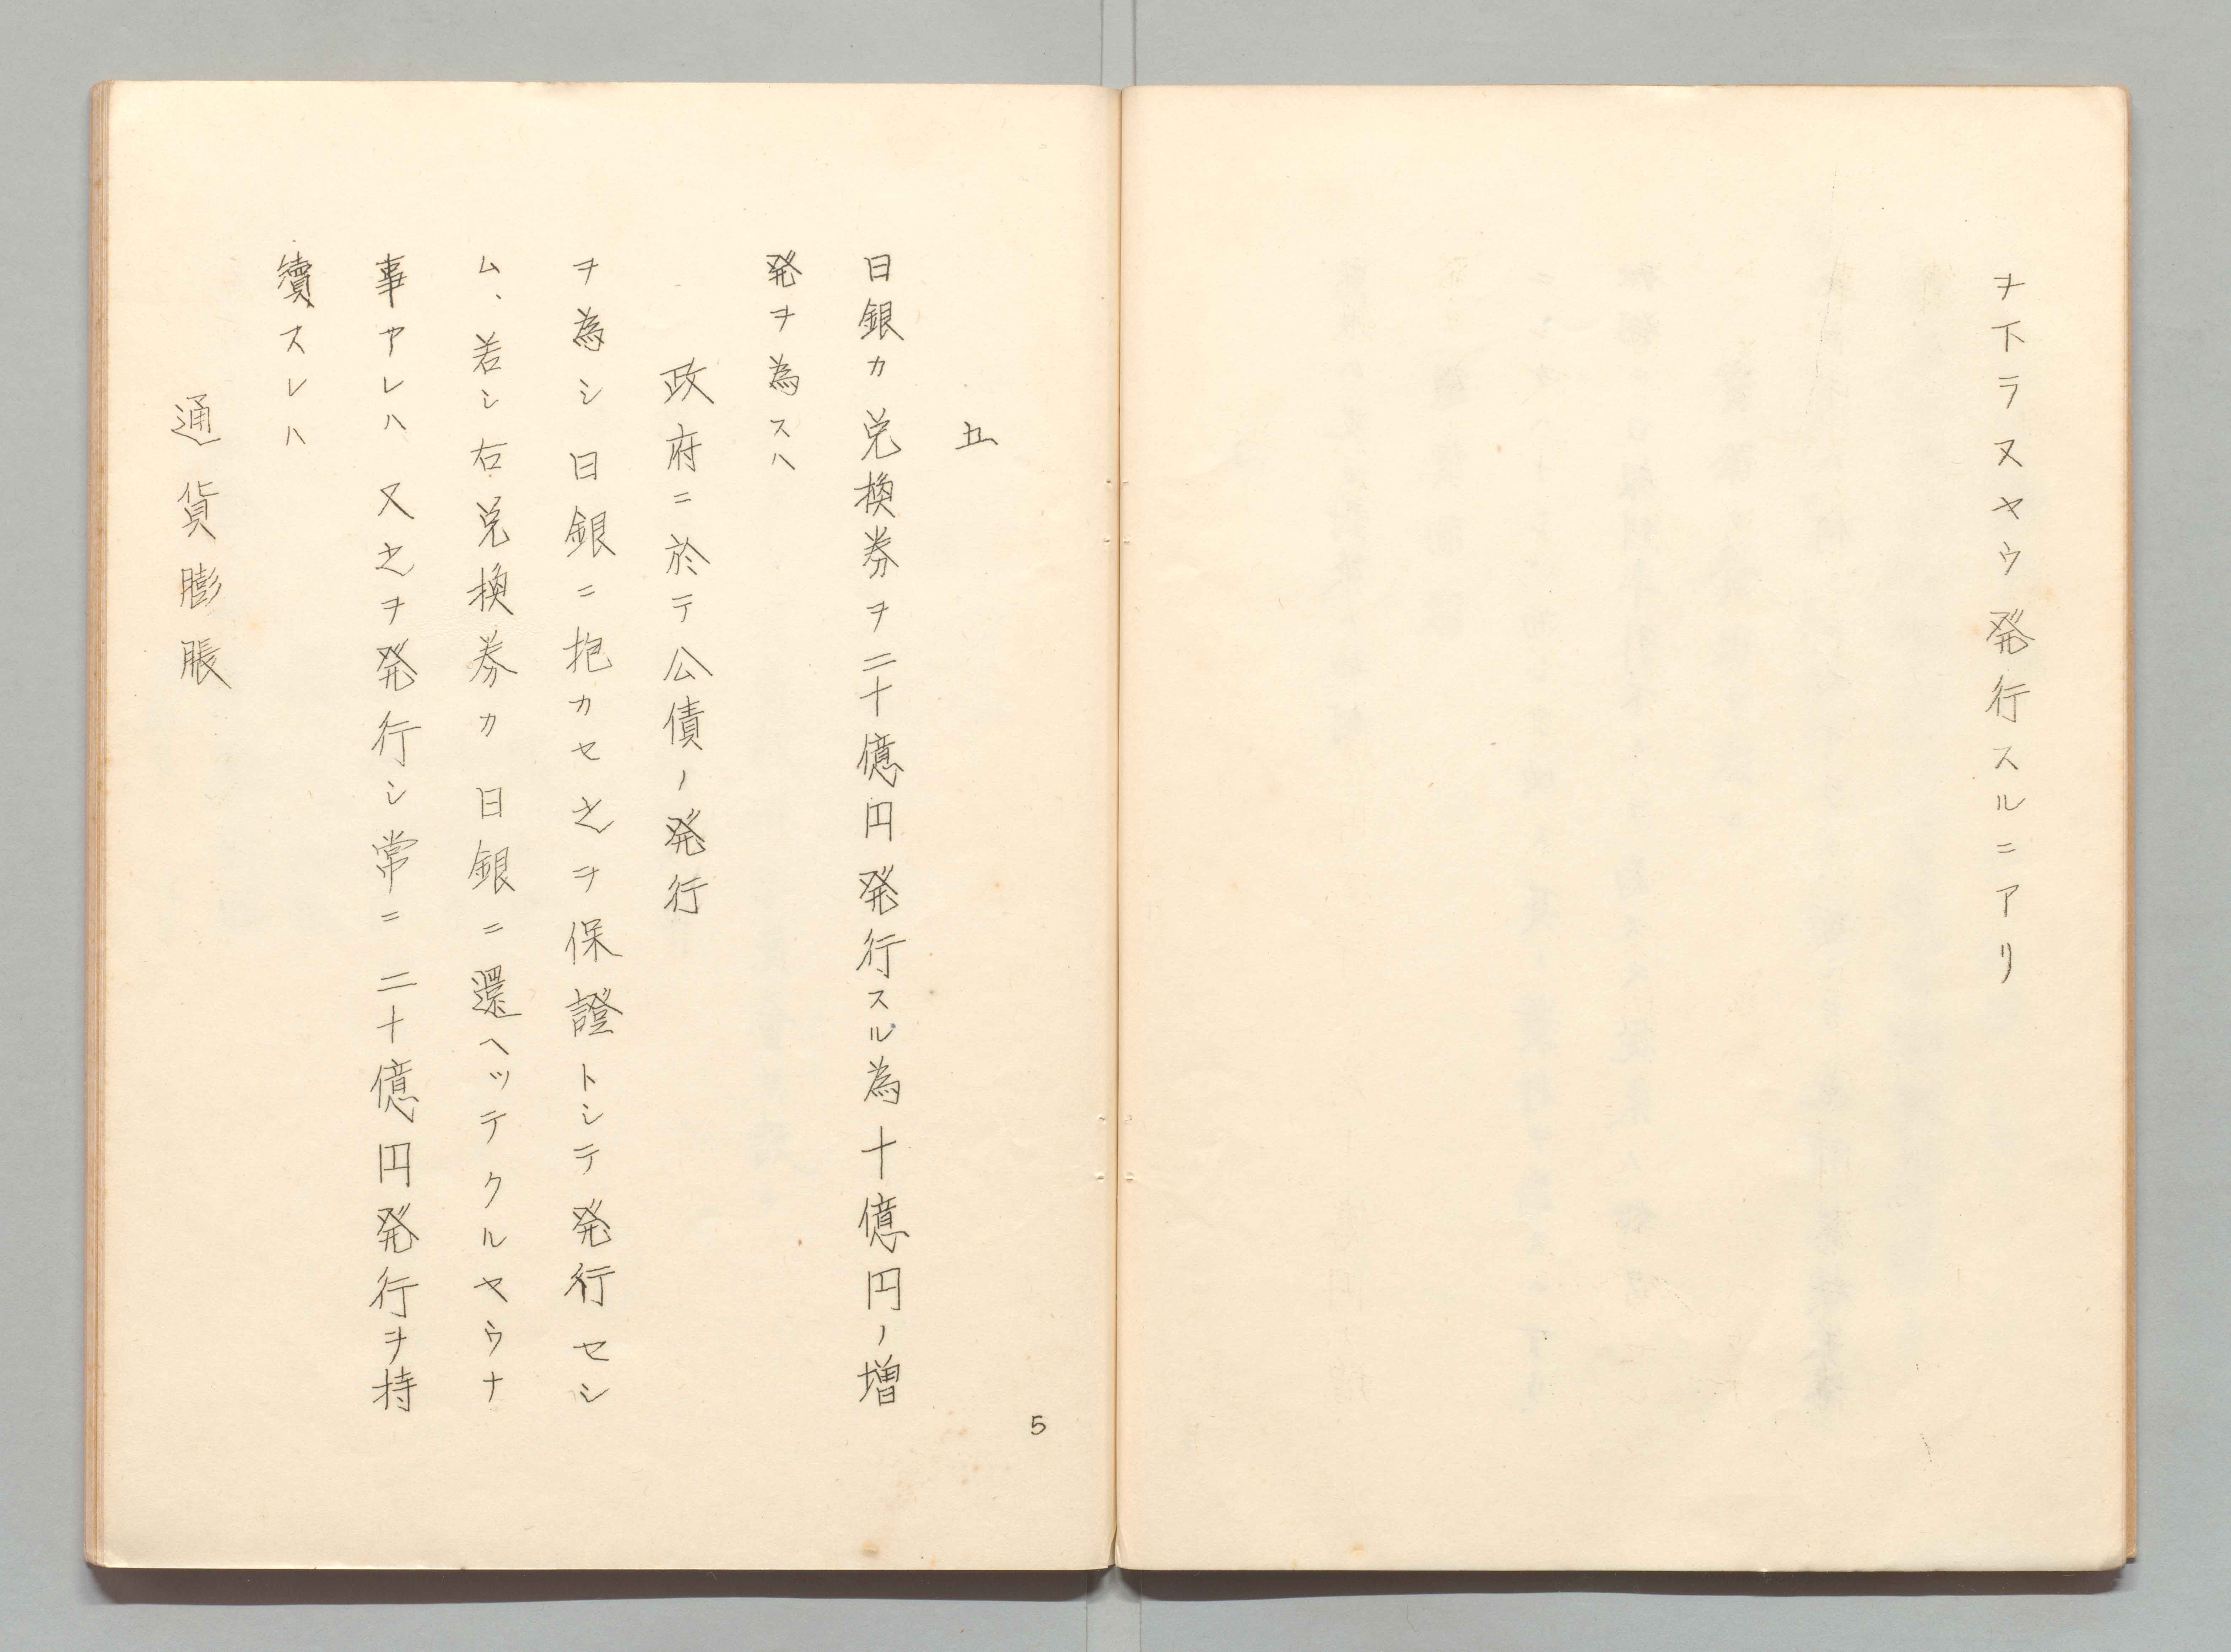 ヲ下ラヌヤウ発行スルニアリ
五
日銀カ兌換券ヲ二十億円発行スル為十億円ノ増
発ヲ為スハ
政府ニ於テ公債ノ発行
ヲ為シ日銀ニ抱カセ之ヲ保證トシテ発行セシ
ム、若シ右兌換券カ日銀ニ還ヘッテクルヤウナ
事アレハ又之ヲ発行シ常ニ二十億円発行ヲ持
續スレハ
通貨膨脹
5